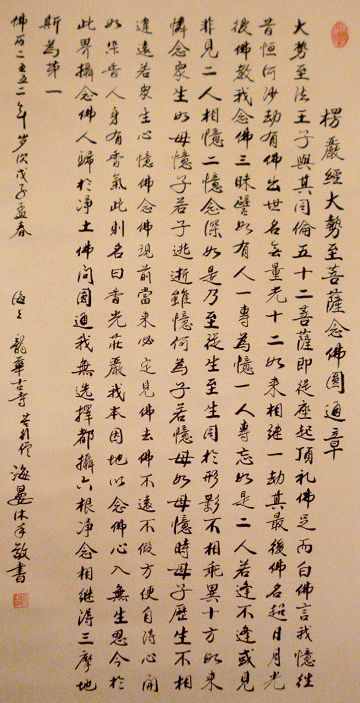 楞嚴經大勢至菩薩念佛圓通章
大勢至法王子與其同倫五十二菩薩即從座起頂礼佛足而白佛言我憶往
昔恒河沙劫有佛出世名無量光十二如来相継一劫其最後佛名超日月光
彼佛教我念佛三昧譬如有人一專為憶一人專忘如是二人若逢不逢或見
非見二人相憶二憶念深如是乃至從生至生同於形影不相乖異十方如来
憐念衆生如母憶子若子逃逝雖憶何為子若憶母如母憶時母子歷生不相
違遠若衆生心憶佛念佛現前當来必定見佛去佛不遠不假方便自得心開
如染香人身有香氣此則名曰香光莊嚴我本因地以念佛心入無生忍今於
此界攝念佛人歸於净土佛问圓通我無選擇都攝六根净念相継得三摩地
斯為第一
佛历二五五二年 岁次戊子孟春
海上 龍華古寺 海曇沐手敬書